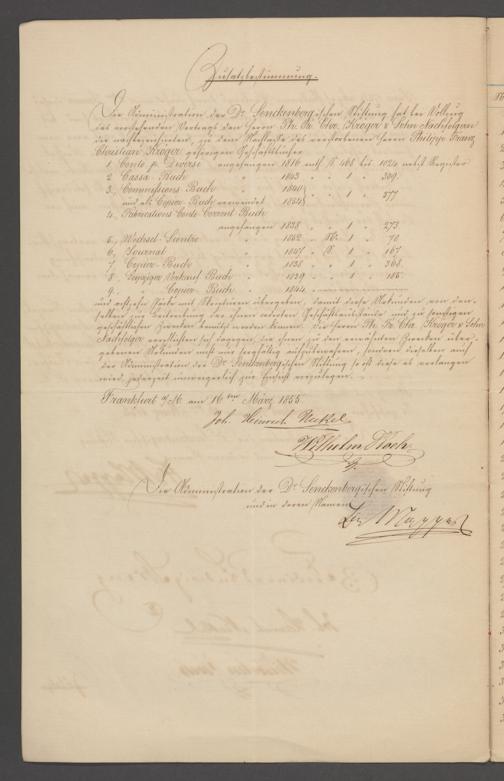 Zusatzbestimmung.
Die Administration der Dr. Senckenbergischen Stiftung hat bei Vollzug
des vorstehenden Vertrags den Herrn Ph. Fr. Chr. Kreger & Sohn Nachfolgern
die nachverzeichneten, zu dem Nachlasse des verstorbenen Herrn Philipp Franz
Christian Kreger gehörigen Geschäftsbücher
1, Conto p. Diversi angefangen 1816 mit S. 468 bis 1024 nebst Register
2, Cassa Buch " 1843 " " 1 " 309.
3, Commissions Buch " 1840
und als Copier-Buch verwendet 1854 " " 1 " 377
4, Publications Conto Corrent Buch
angefangen 1838 " " 1 " 273.
5, Wechsel-Scontro " 1842 " No. 1 " 70
6, Journal " 1847 " S. 1 " 167
7, Copier-Buch " 1838 " " 1 " 368.
8, Leipziger Verkauf Buch " 1839 " " 1 " 185.
9, " Copier-Buch " 1844
und Skripturen übergeben, damit diese Urkunden von den
selben zur Betreibung der ihnen cedirten Geschäfts und zu sonstigen
geschäftlichen Zwecken benutzt werden können. Die Herrn Ph. Fr. Chr. Kreger & Sohn
Nachfolger verpflichten sich dagegen, die ihnen zu den erwähnten Zwecken über-
gebenen Urkunden nicht nur sorgfältig aufzubewahren, sondern dieselben auch
der Administration der Dr. Senckenbergischen Stiftung so oft diese es verlangen
wird jederzeit unweigerlich zur Einsicht vorzulegen.
Frankfurt a/M. am 16ten März 1855.
Joh. Heinrich Neckel
Wilhelm Koch
Die Administration der Dr. Senckenbergischen Stiftung
und in deren Namen